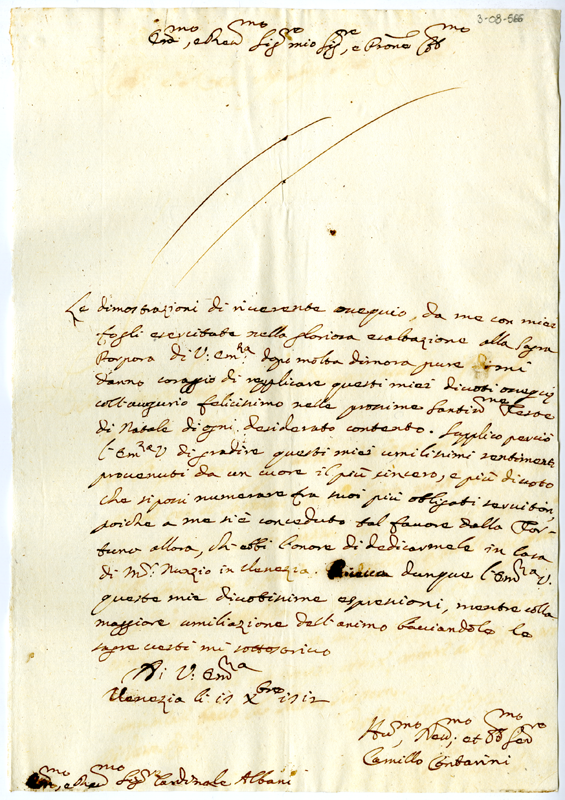 3-08-566
Em.mo, e Rev.mo Sig.re mio Sig.re, e Prone Col.mo
Le dimostrazioni di riverente ossequio, da me con miei
fogli esercitate nella gloriosa esaltazione alla Sagra
Porpora di V: Em.za dopo molta dimora pure mi
danno coraggio di repplicare questi miei divoti ossequij
coll'augurio felicissimo nelle prossime Santiss.me Feste
di Natale di ogni desiderato contento. Supplico perciò
l'Em.za V di gradire questi miei umilissimi sentimenti
provenuti da un cuore il più sincero, e più divoto
che si possi numerare fra suoi più obligati servitori,
poiche a me si è conceduto tal favore dalla For-
tuna allora, ch'ebbi l'onore di dedicarmele in Casa
di M.r Nunzio in Venezia. dunque l'Em.za V.
queste mie divotissime espressioni, mentre colla
maggiore umiliazione dell'animo baciandole le
sagre vesti mi sottoscrivo
Di V: Em.za
Venezia li Xbre
Hu.mo, Rev.mo, et Ob.mo Ser.re
Camillo Contarini
Em.mo, e Rev.mo Sig.r Cardinale Albani